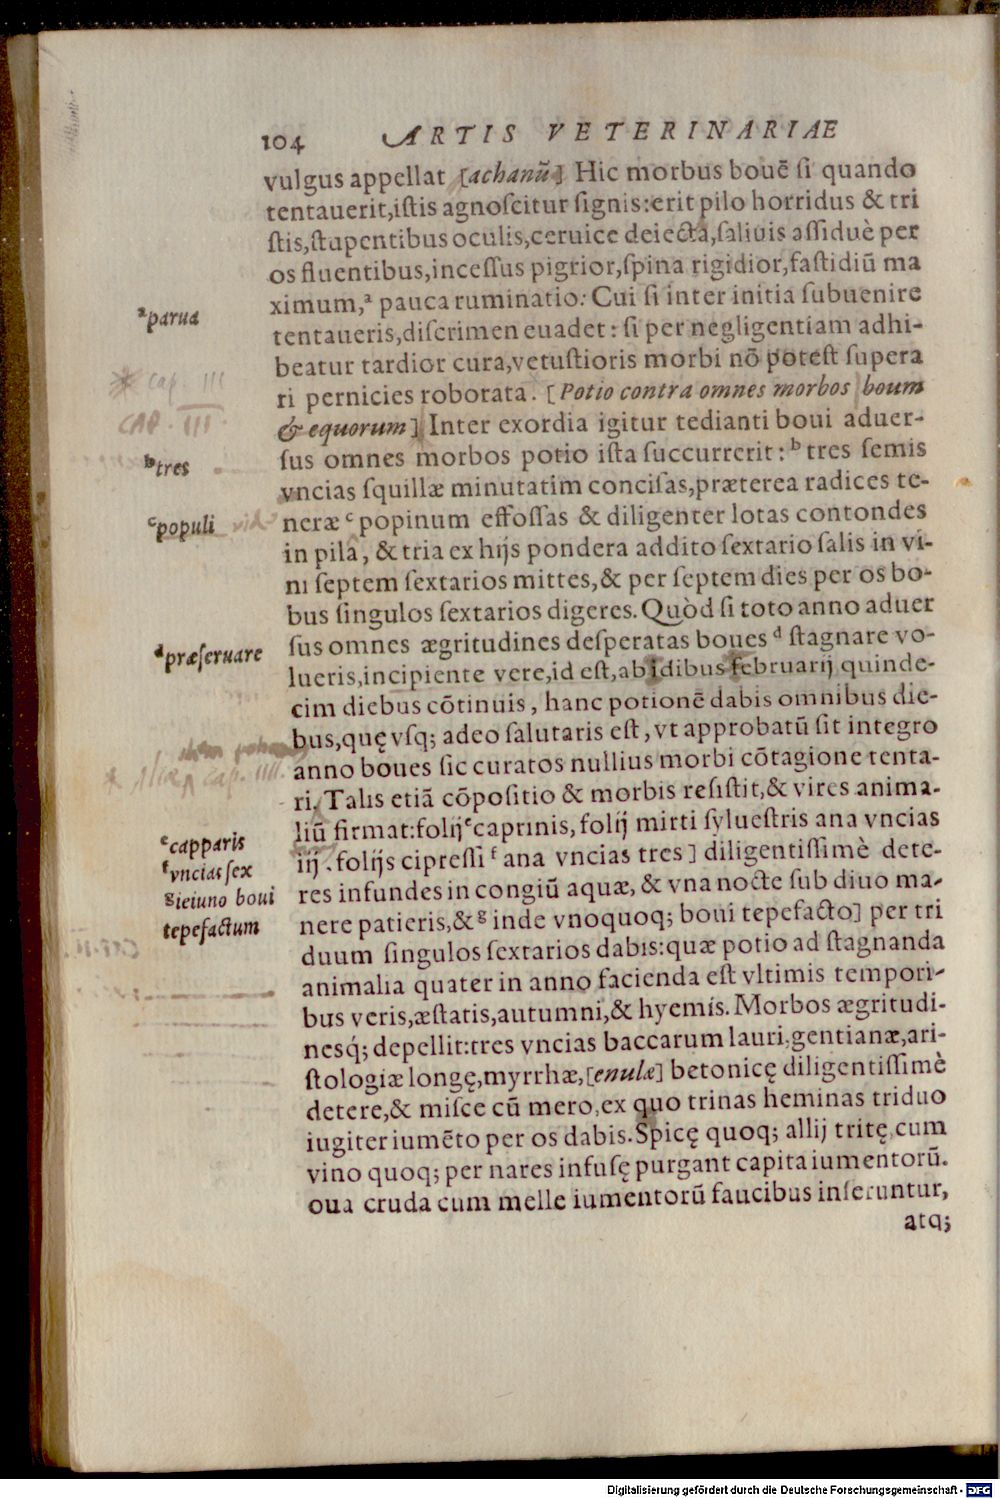 104 ARTIS VETERINARIAE
vulgus appellat [achanū] Hic morbus bouē ſi quando
tentauerit,iſtis agnoſcitur ſignis:erit pilo horridus & tri
ſtis,ſtupentibus oculis,ceruice deiecta,ſaliuis aſſiduè per
os fluentibus,inceſſus pigrior,ſpina rigidior,faſtidiū ma
ximum,ᵃ pauca ruminatio: Cui ſi inter initia ſubuenire
ᵃparua
tentaueris,diſcrimen euadet: ſi per negligentiam adhi-
beatur tardior cura,vetuſtioris morbi nō poteſt ſupera
* cap. III
ri pernicies roborata. [Potio contra omnes morbos boum
CAP. III.
& equorum] Inter exordia igitur tedianti boui aduer-
ſus omnes morbos potio iſta ſuccurrerit: ᵇ tres ſemis
ᵇtres
vncias ſquillæ minutatim conciſas,præterea radices te-
neræ ᶜ popinum effoſſas & diligenter lotas contondes
ᶜpopuli
in pila, & tria ex hijs pondera addito ſextario ſalis in vi-
ni ſeptem ſextarios mittes,& per ſeptem dies per os bo-
bus ſingulos ſextarios digeres. Quòd ſi toto anno aduer
ſus omnes ægritudines deſperatas boues ᵈ ſtagnare vo-
ᵈpræſeruare
lueris,incipiente vere,id eſt,ab Idibus februarij quinde-
cim diebus cōtinuis, hanc potionē dabis omnibus die-
bus,quę vſq; adeo ſalutaris eſt, vt approbatū ſit integro
anno boues ſic curatos nullius morbi cōtagione tenta-
* cap. IIII.
ri. Talis etiā cōpoſitio & morbis reſiſtit,& vires anima-
liū firmat:folijᵉcaprinis, folij mirti ſylueſtris ana vncias
ᵉcapparis
iij. folijs cipreſſi ᶠ ana vncias tres] diligentiſſimè dete-
ᶠvncias ſex
res infundes in congiū aquæ, & vna nocte ſub diuo ma-
ᵍieiuno boui
nere patieris,&ᵍ inde vnoquoq; boui tepefacto] per tri
tepefactum
duum ſingulos ſextarios dabis:quæ potio ad ſtagnanda
animalia quater in anno facienda eſt vltimis tempori-
bus veris,æſtatis,autumni,& hyemis. Morbos ægritudi-
nesq́; depellit:tres vncias baccarum lauri,gentianæ,ari-
ſtologiæ longę,myrrhæ,[enulæ] betonicę diligentiſſimè
detere,& miſce cū mero,ex quo trinas heminas triduo
iugiter iumēto per os dabis. Spicę quoq; allij tritę,cum
vino quoq; per nares infuſę purgant capita iumentorū.
oua cruda cum melle iumentorū faucibus inſeruntur,
atq;
Digitalisierung gefördert durch die Deutsche Forschungsgemeinschaft - DFG